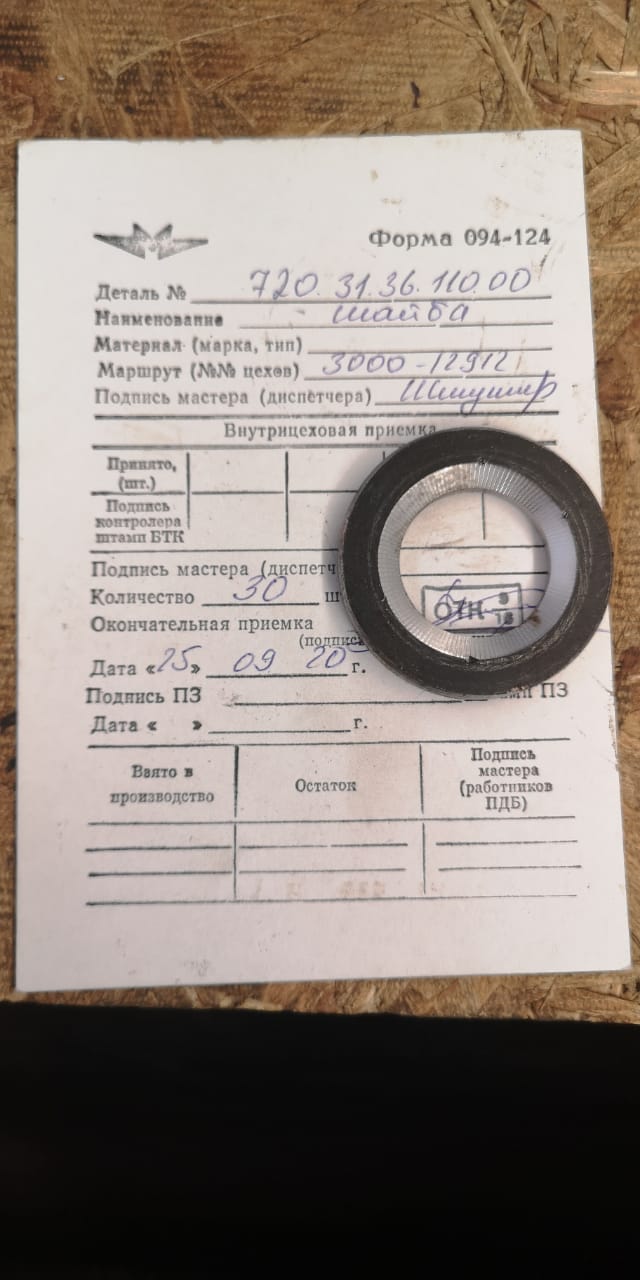 Форма 094-124
Деталь № 720.31.36.110.00
Наименование шайба
Материал (марка, тип)
Маршрут (№№ цехов) 3000-12912
Подпись мастера (диспетчера)
Внутрицеховая приемка
Принято,
(шт.)
Подпись
контролера
штамп БТК
Подпись мастера (диспетч
Количество 30 ш
ОТК 9
18
Окончательная приемка
(подпись
Дата «25» 09 20 г.
Подпись ПЗ ПЗ
Дата « » г.
Взято в
производство
Остаток
Подпись
мастера
(работников
ПДБ)